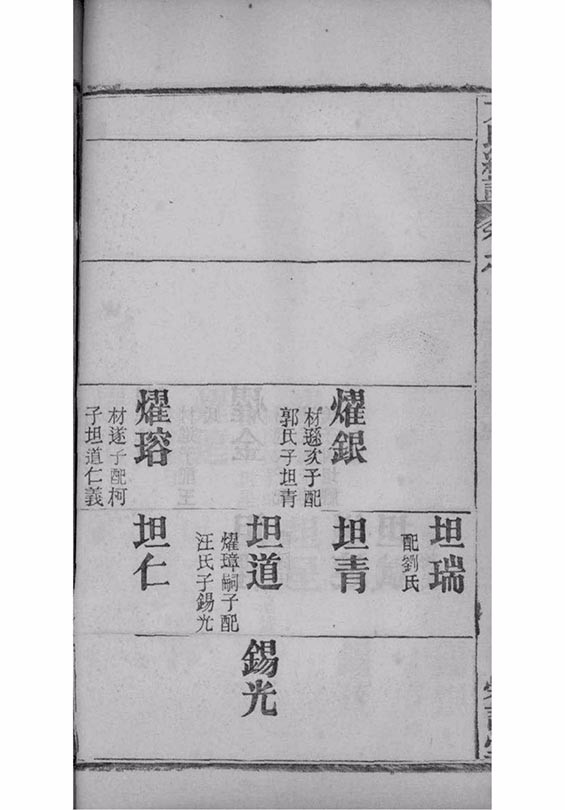 坦瑞
配劉氏
燿銀
材遜次子配
郭氏子坦青
坦青
坦道
燿璋嗣子配
汪氏子錫光
錫光
燿瑢
材遂子配柯
子坦道仁義
坦仁